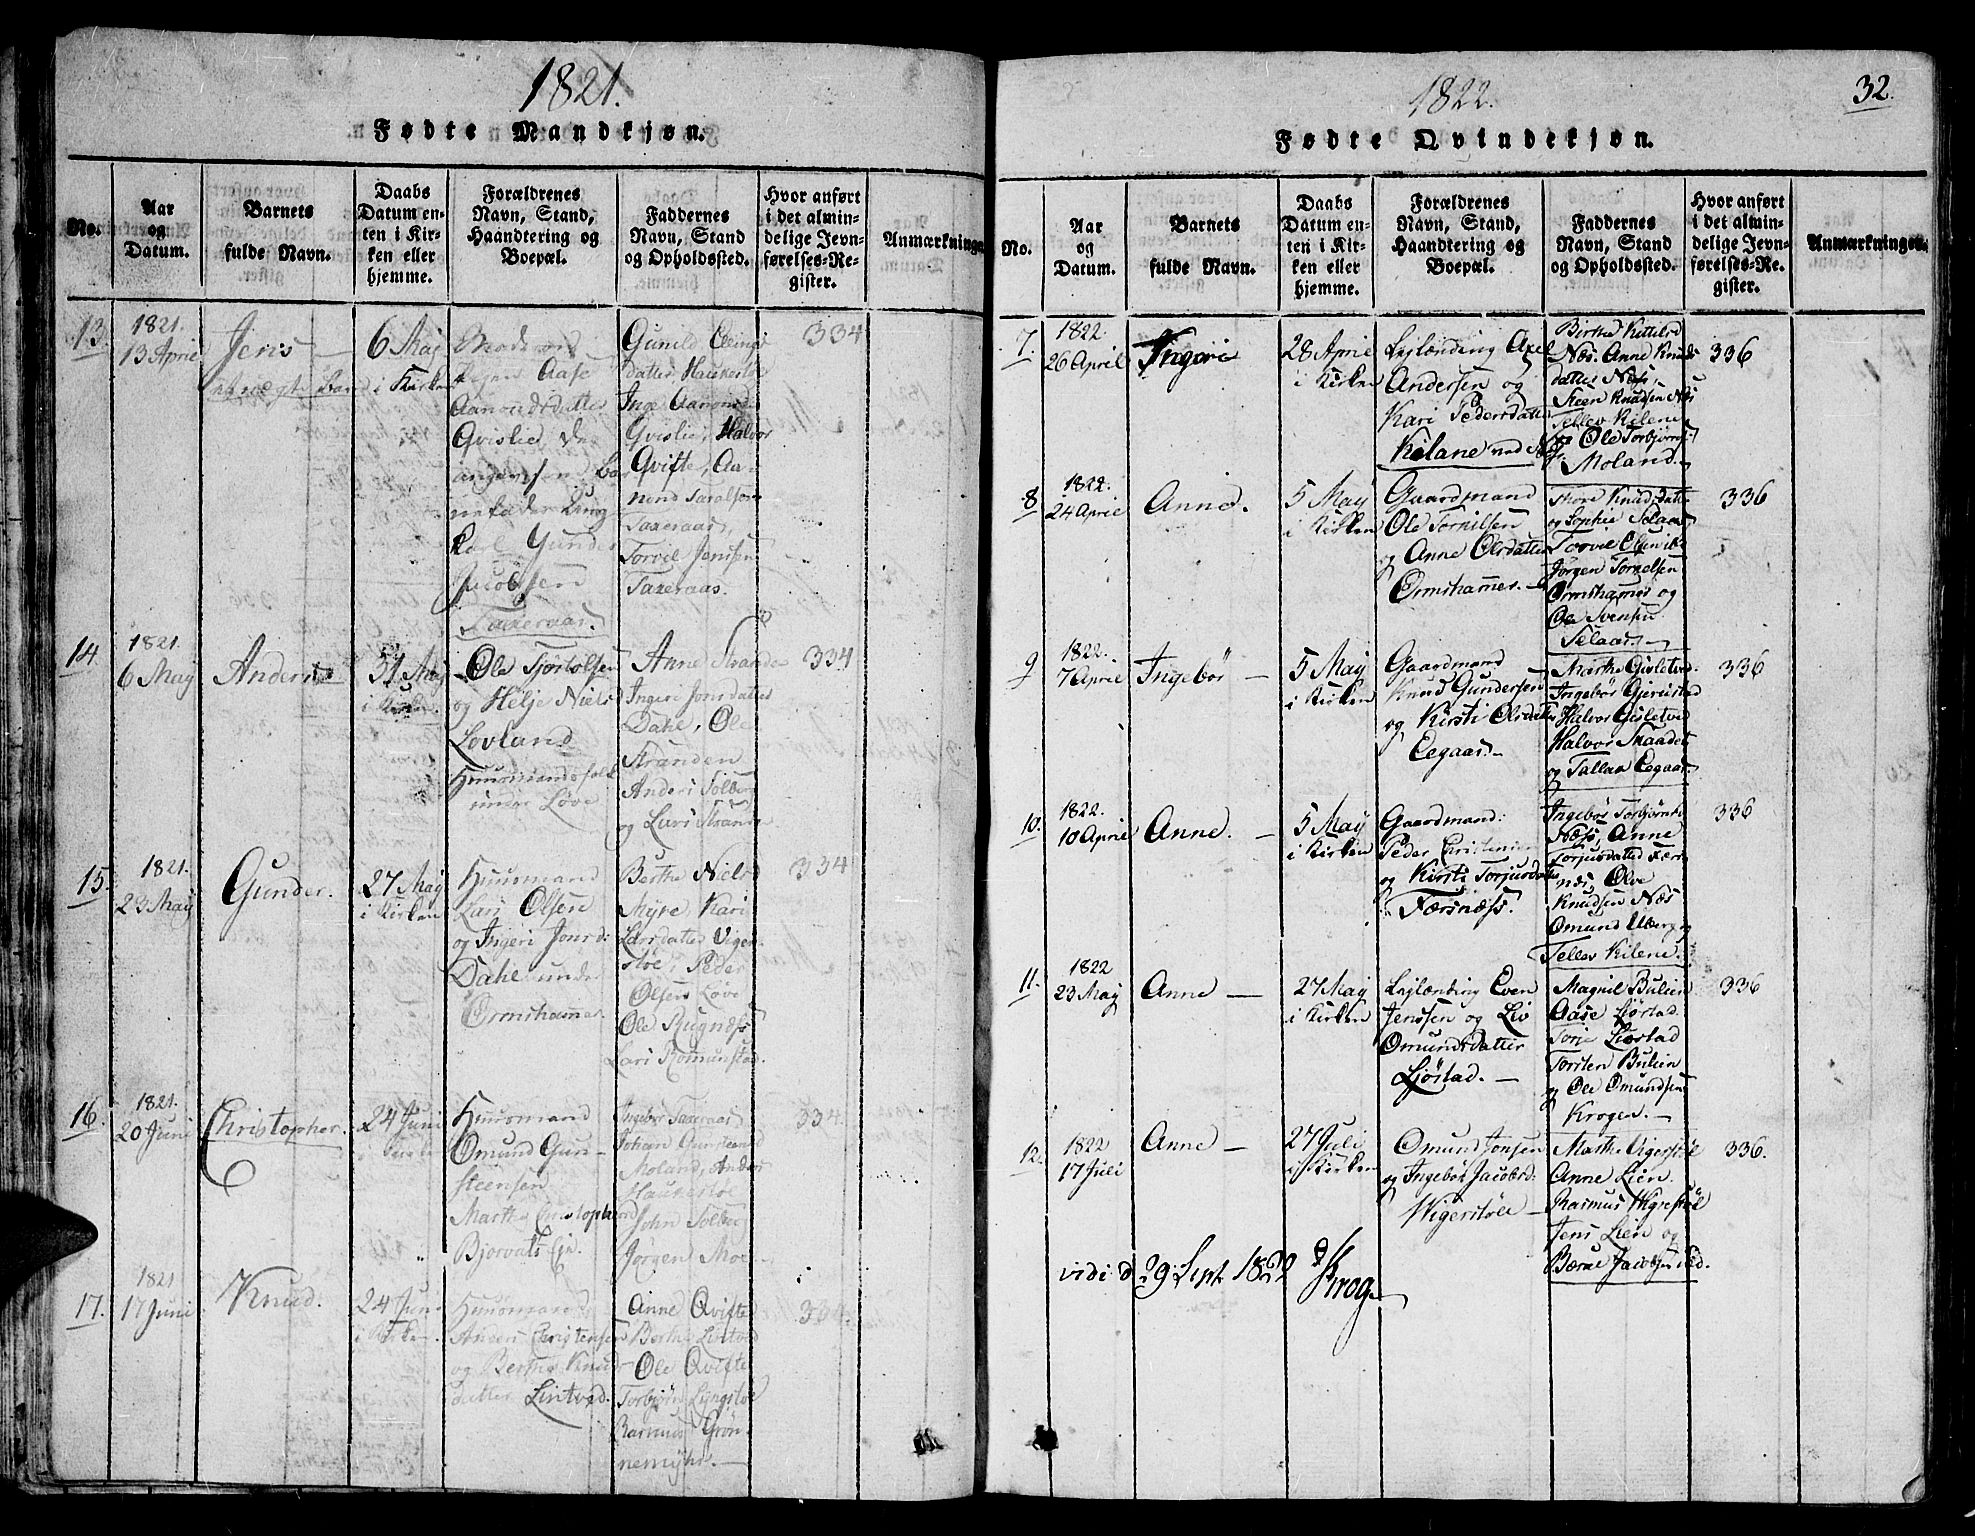 1821.
Fødte Mandkjøn.
No.
Aar
og
Datum.
Barnets
fulde Navn.
Daabs
Datum en-
ten i Kir-
ken eller
hjemme.
Forældrenes
Navn, Stand,
Haandtering og
Boepæl.
Faddernes
Navn, Stand
og Opholdssted.
Hvor anført
i det almin-
delige Jevn-
førelses-Re-
gister.
Anmærkninger
13
1821.
13 April
Jens
uægte
6 Maj
i Kirken
Aase
Aanondsdatter
Qvislie
Karl Gunder
Jacobsen
Taxeraas.
Gunild
datter Haukestø
Inge Aanonds
Qvislie, Halvor
Qvifte, Aa-
nond Taralsen
Taxeraas,
Torvil Jensen
Taxeraas.
334
14.
1821.
6 May
Anders
31 May
i Kirken
Ole Tjøstolsen
og Helje Niels
Lovland
Huusmandsfolk
under Løve
Anne Strande
Ingeri Jonsdatter
Dahl, Ole
Stranden
Anders Solberg
og Lars Strande
334
15.
1821.
23 May
Gunder.
27 May
i Kirken
Huusmand
Lars Olsen
og Ingeri Jonsd:
Dahl under
Ormshammer
Berthe Nielsd
Myre Kari
Larsdatter Viger-
støe, Peder
Olsen Løve
Ole Rugnæss
Lars Romunstad.
334
16.
1821.
20 Juni
Christopher.
24 Juni
i Kirken
Huusmand
Omund Gun-
steensen
Marthe Christophersd
Bjorvats Eje.
Ingebør Taxeraas
Johan Gunsteens
Moland, Anders
Haukestøe
John Solberg
Jørgen Moe
334.
17.
1821
17 Juni
Knud.
24 Juni
i Kirken
Huusmand
Anders Christensen
og Berthe Knuds-
datter Lintved.
Anne Qvifte
Berthe Lintved
Ole Qvifte
Torbjørn Lyngstøe
Rasmus Grøn-
nemyhr.
334.
1822.
32.
Fødte Qvindekjøn.
No.
Aar
og
Datum.
Barnets
fulde Navn.
Daabs
Datum en-
ten i Kir-
ken eller
hjemme.
Forældrenes
Navn, Stand,
Haandtering og
Boepæl.
Faddernes
Navn, Stand
og Opholdssted.
Hvor anført
i det almin-
delige Jevn-
førelses-Re-
gister.
Anmærkninger.
7.
1822.
26 April
Ingeri
28 April
i Kirken
Lejlænding Axel
Andersen og
Kari Pedersdatter
Kilane ved
Birthe Kittelsd
Næs. Anne Knuds
datter Næs,
Steen Knudsen Næs
Tellev Kilene
og Ole Torbjørns.
Moland.
336
8
1822.
24 April
Anne.
5 May
i Kirken
Gaardmand
Ole Torkilsen
og Anne Olsdatter
Ormshammer.
Thore Knudsdatter
og Sophie Selaas
Torvil
Jørgen Torkelsen
Ormshamer og
Ole Svensen
Selaas.
336
9
1822.
7 April
Ingebør
5 May
i Kirken
Gaardmand
Knud Gundersen
og Kirsti Olsdatter
Eegaas.
Marthe Gisletved
Ingebør Gjerustad
Halvor Gisletved
Halvor Skaadet
og Tallak Eegaas.
336
10.
1822.
10 April
Anne.
5 May
i Kirken
Gaardmand:
Peder Christensen
og Kirsti Torjusdatter
Færsnæss.
Ingebør Torbjørnsd
Næss, Anne
Torjusdatter Færs-
næs, Olve
Knudsen Næs
Omund Uberg og
Tellev Kilene.
336
11.
1822
23 May
Anne
27 May
i Kirken
Lejlænding Even
Jenssen og Liv
Omundsdatter
Ljøstad.
Magnil Bulien
Aase Ljøstad.
Torje Ljøstad
Torsten Bulien
og Ole Omundsen
Krogen.
336
12.
1822
17 Juli
Anne
27 Juli
i Kirken
Omund Jonsen
og Ingebør Jacobsd:
Wigerstøle
Marthe Vigerstøl
Anne Lien.
Rasmus Wigrestøl
Jens Lien og
Børne Jacobsen ibd.
336.
vidi d. 29 Sept 1822
Krog